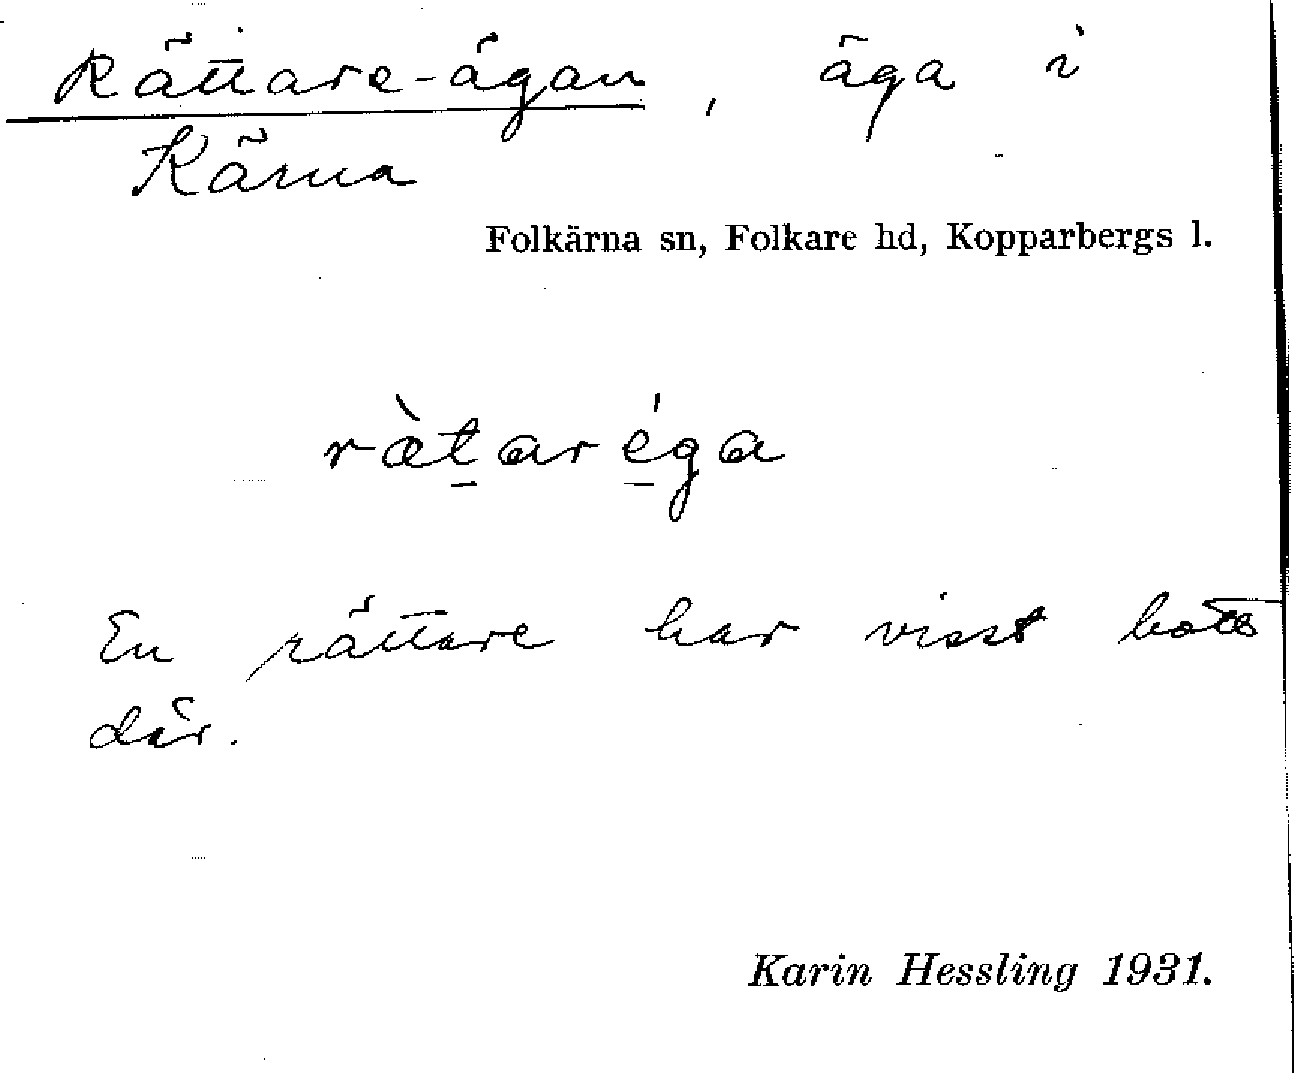 Rättare-ägan, äga i
Kärna
Folkärna sn, Folkare hd, Kopparbergs l.
ræ̀t̠aré̠ga
En rättare har visst bott
där.
Karin Hessling 1931.